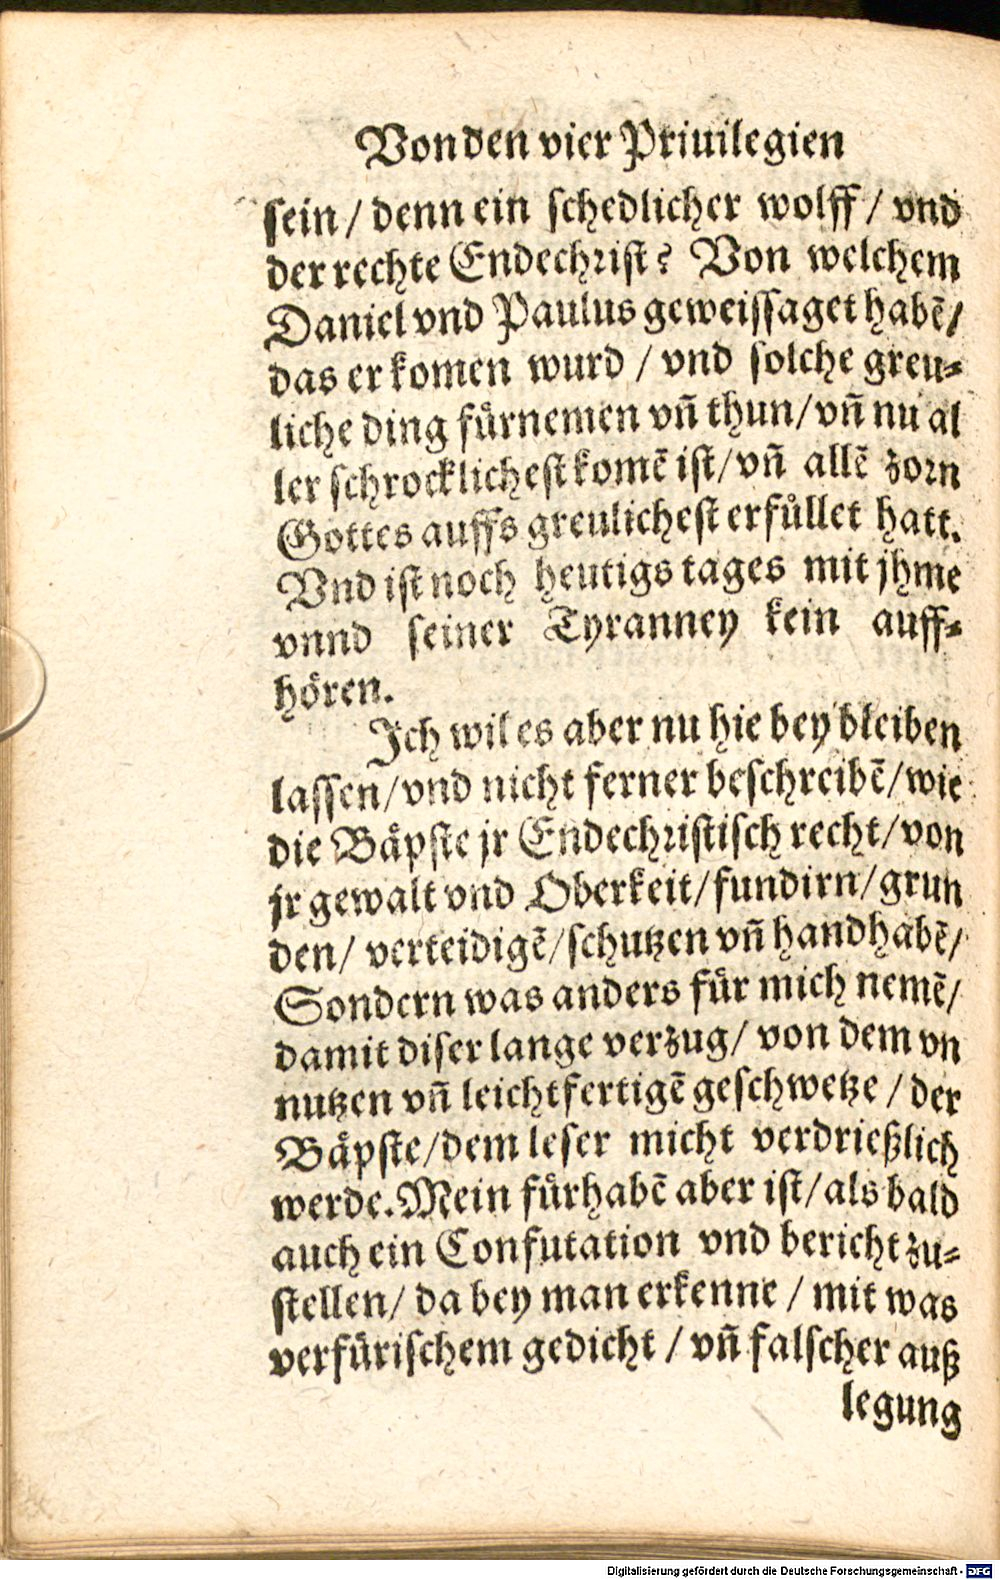 Von den vier Priuilegien
sein / denn ein schedlicher wolff / vnd
der rechte Endechrist? Von welchem
Daniel vnd Paulus geweissaget habẽ /
das er komen wurd / vnd solche greu-
liche ding fürnemen vñ thun / vñ nu al
ler schrocklichest komẽ ist / vñ allẽ zorn
Gottes auffs greulichest erfüllet hatt.
Vnd ist noch heutigs tages mit jhme
vnnd seiner Tyranney kein auff-
hören.
Ich wil es aber nu hie bey bleiben
lassen / vnd nicht ferner beschreibẽ / wie
die Bäpste jr Endechristisch recht / von
jr gewalt vnd Oberkeit / fundirn / grun
den / verteidigẽ / schutzen vñ handhabẽ /
Sondern was anders für mich nemẽ /
damit diser lange verzug / von dem vn
nutzen vñ leichtfertigẽ geschwetze / der
Bäpste / dem leser nicht verdrießlich
werde. Mein fürhabẽ aber ist / als bald
auch ein Confutation vnd bericht zu-
stellen / da bey man erkenne / mit was
verfürischem gedicht / vñ falscher auß
legung
Digitalisierung gefördert durch die Deutsche Forschungsgemeinschaft - DFG